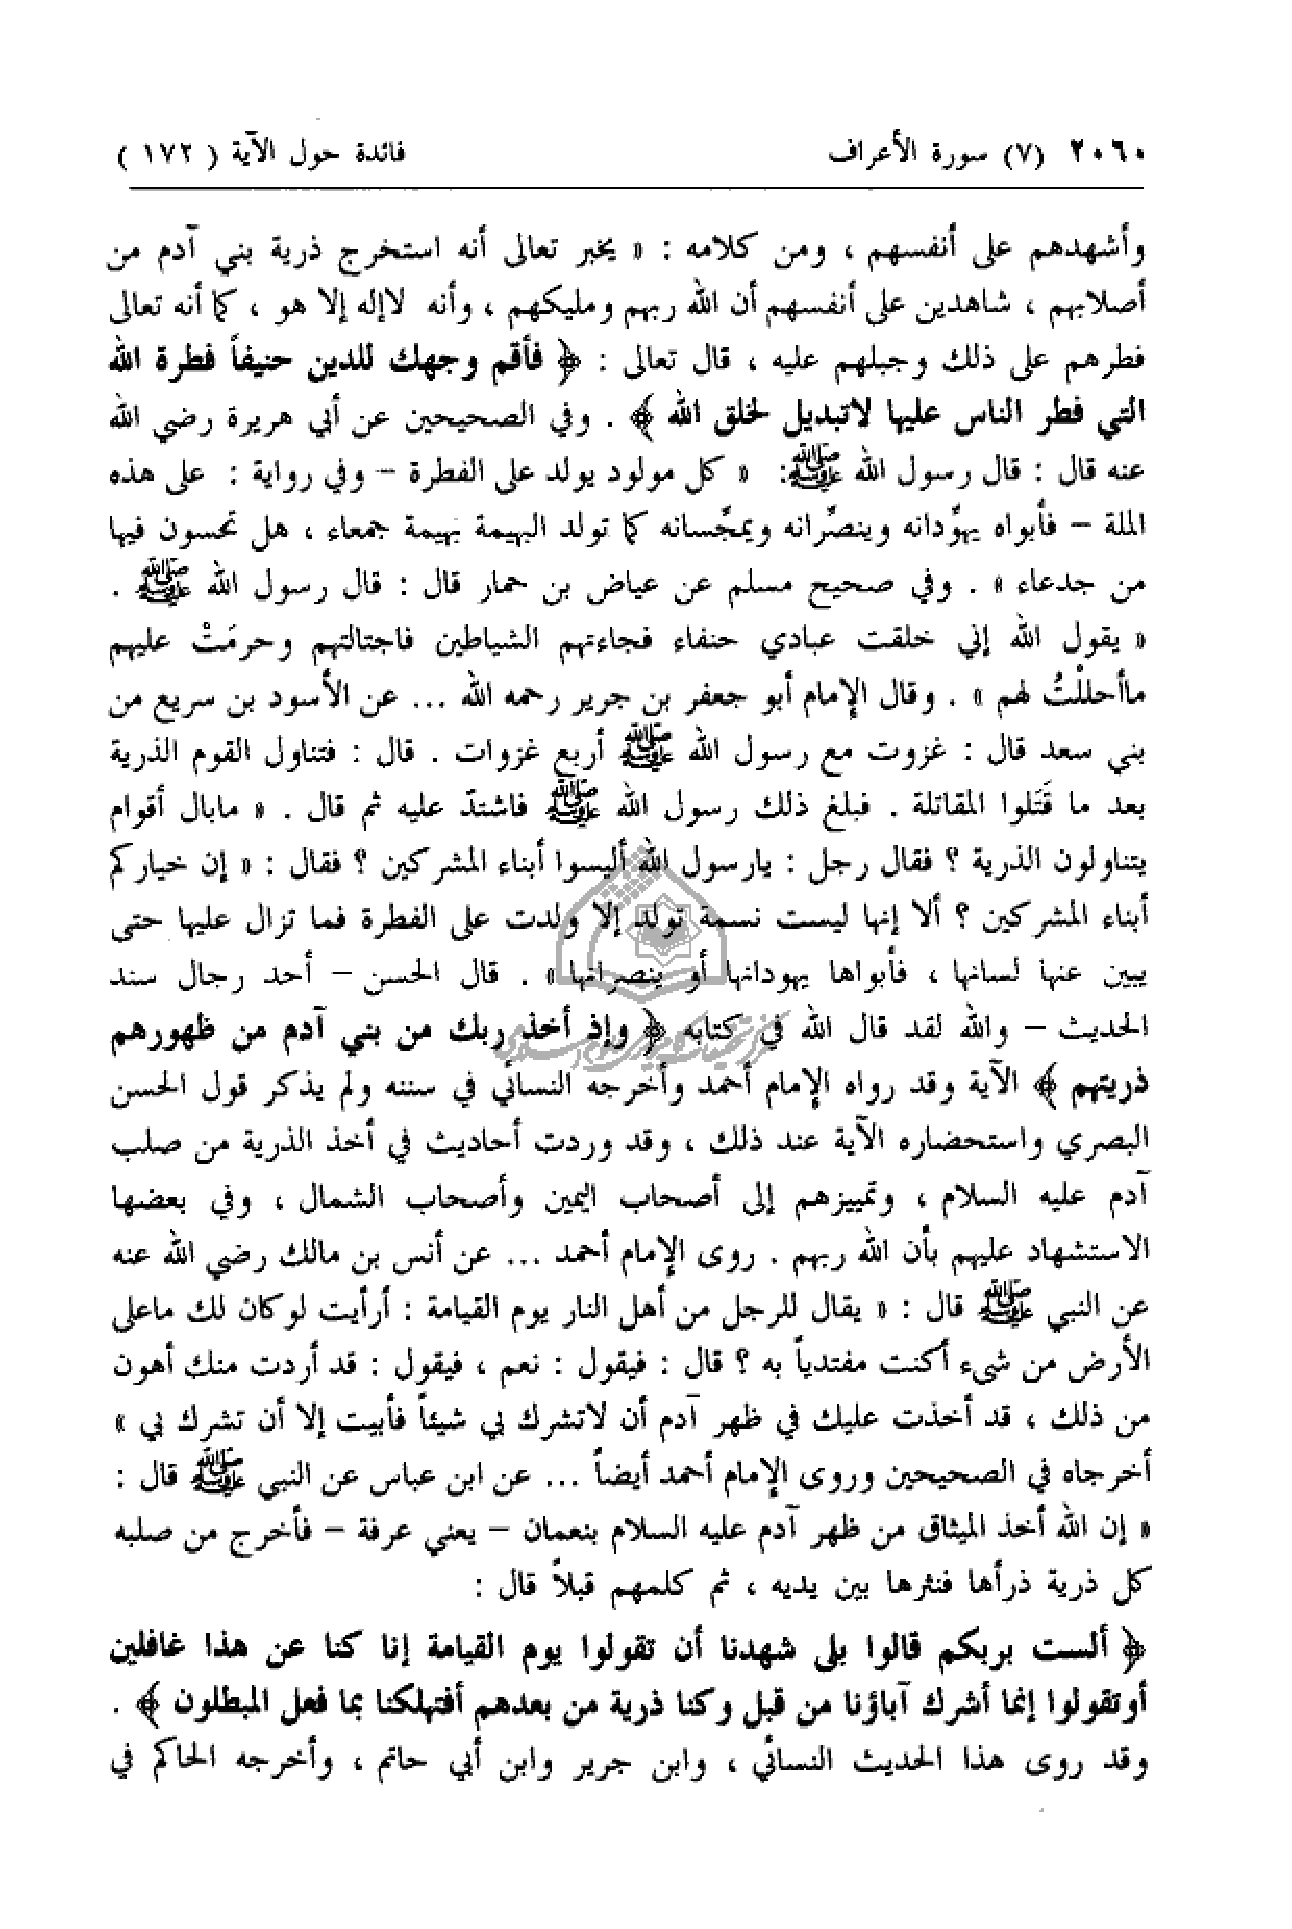 ٢٠٦٠ (٧) سورة الأعراف فائدة حول الآية ( ١٧٢ )
وأشهدهم على أنفسهم ، ومن كلامه : « يخبر تعالى أنه استخرج ذرية بني آدم من
أصلابهم ، شاهدين على أنفسهم أن الله ربهم ومليكهم ، وأنه لاإله إلا هو ، كما أنه تعالى
فطرهم على ذلك وجبلهم عليه ، قال تعالى : ﴿ فأقم وجهك للدين حنيفاً فطرة الله
التي فطر الناس عليها لاتبديل لخلق الله ﴾ . وفي الصحيحين عن أبي هريرة رضي الله
عنه قال : قال رسول الله ﷺ: « كل مولود يولد على الفطرة – وفي رواية : على هذه
الملة – فأبواه يهوِّدانه وينصِّرانه ويمجِّسانه كما تولد البهيمة بهيمة جمعاء ، هل تحسون فيها
من جدعاء » . وفي صحيح مسلم عن عياض بن حمار قال : قال رسول الله ﷺ .
« يقول الله إني خلقت عبادي حنفاء فجاءتهم الشياطين فاجتالتهم وحرمَتْ عليهم
ماأحللْتُ لهم » . وقال الإمام أبو جعفر بن جرير رحمه الله ... عن الأسود بن سريع من
بني سعد قال : غزوت مع رسول الله ﷺ أربع غزوات . قال : فتناول القوم الذرية
بعد ما قَتَلوا المقاتلة . فبلغ ذلك رسول الله ﷺ فاشتدّ عليه ثم قال . « مابال أقوام
يتناولون الذرية ؟ فقال رجل : يارسول الله أليسوا أبناء المشركين ؟ فقال : « إن خياركم
أبناء المشركين ؟ ألا إنها ليست نسمة تولد إلا ولدت على الفطرة فما تزال عليها حتى
يبين عنها لسانها ، فأبواها يهودانها أو ينصرانها » . قال الحسن – أحد رجال سند
الحديث – والله لقد قال الله في كتابه ﴿ وإذ أخذ ربك من بني آدم من ظهورهم
ذريتهم ﴾ الآية وقد رواه الإمام أحمد وأخرجه النسائي في سننه ولم يذكر قول الحسن
البصري واستحضاره الآية عند ذلك ، وقد وردت أحاديث في أخذ الذرية من صلب
آدم عليه السلام ، وتمييزهم إلى أصحاب اليمين وأصحاب الشمال ، وفي بعضها
الاستشهاد عليهم بأن الله ربهم . روى الإمام أحمد ... عن أنس بن مالك رضي الله عنه
عن النبي ﷺ قال : « يقال للرجل من أهل النار يوم القيامة : أرأيت لوكان لك ماعلى
الأرض من شيء أكنت مفتدياً به ؟ قال : فيقول : نعم ، فيقول : قد أردت منك أهون
من ذلك ، قد أخذت عليك في ظهر آدم أن لاتشرك بي شيئاً فأبيت إلا أن تشرك بي »
أخرجاه في الصحيحين وروى الإمام أحمد أيضاً ... عن ابن عباس عن النبي ﷺ قال :
« إن الله أخذ الميثاق من ظهر آدم عليه السلام بنعمان – يعني عرفة – فأخرج من صلبه
كل ذرية ذرأها فنثرها بين يديه ، ثم كلمهم قبلاً قال :
﴿ ألست بربكم قالوا بلى شهدنا أن تقولوا يوم القيامة إنا كنا عن هذا غافلين
أوتقولوا إنما أشرك آباؤنا من قبل وكنا ذرية من بعدهم أفتهلكنا بما فعل المبطلون ﴾ .
وقد روى هذا الحديث النسائي ، وابن جرير وابن أبي حاتم ، وأخرجه الحاكم في